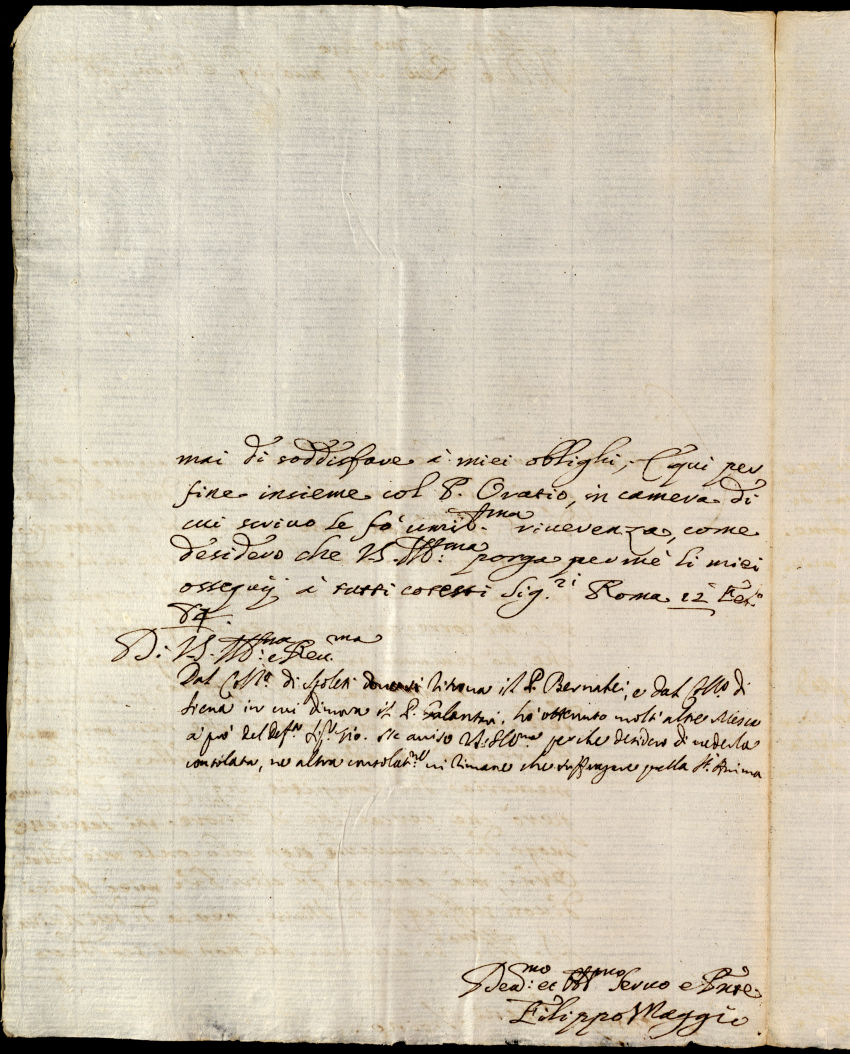 mai di soddisfare à miei oblighi; E qui per
fine insieme col P. Oratio, in camera di
cui scrivo le fò umil.ma riverenza, come
desidero che V.S. Ill.ma porga per mè li miei
ossequij à tutti cotesti Sig.ri Roma 12
84.
Di V.S. Ill.ma e Rev.ma
Dal Coll.o di Spoleti ritrova il P. Bernabei, e dal Coll.o di
Siena in cui dimora il P. Galantini, hò ottenuto molt'altre Messe
a prò del def.to Sig.r Gio. Ne aviso V.S. Ill.ma perche desidero di vederla
consolata, ne altra consolat.ne vi rimane che suffragare quella S.ta Anima
Dev.mo et Obl.mo Servo e
Filippo Maggio